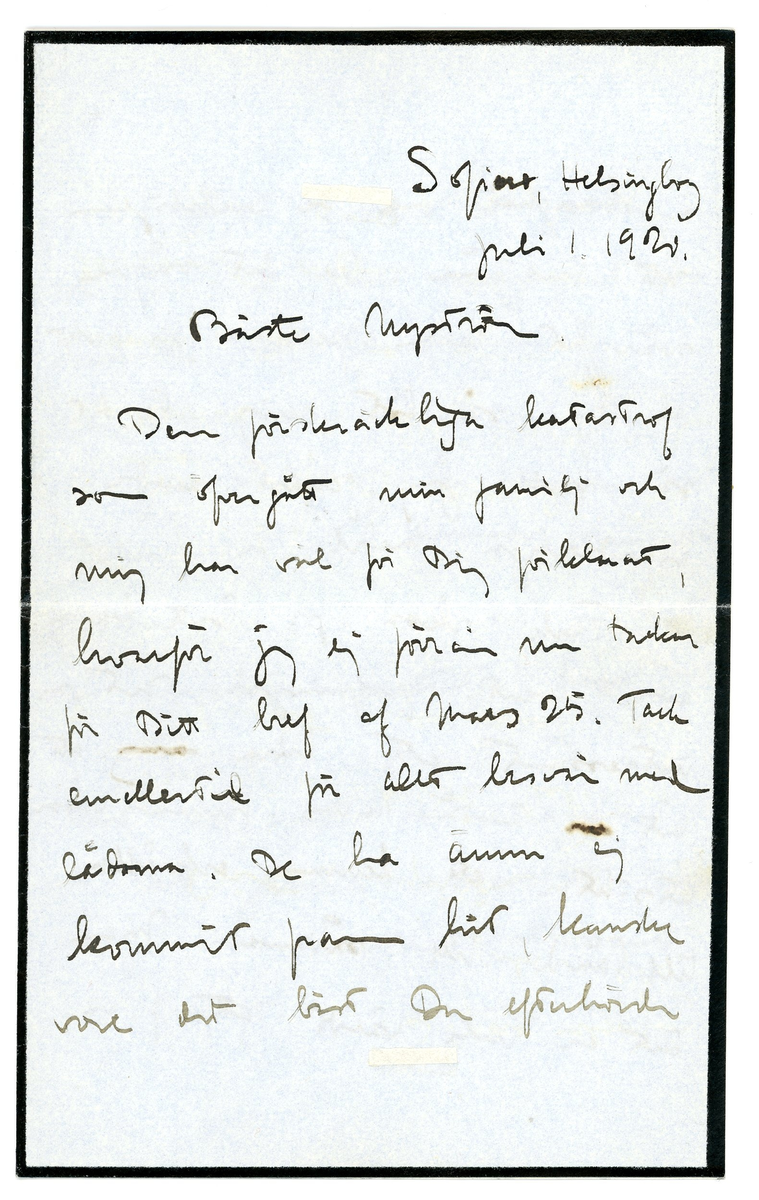 Sofiero, Helsingborg
juli 1. 1920.
Bäste Nyström.
Den förskräckliga katastrof
som öfvergått min familj och
mig har väl för Dig förklarat,
hvarför jag ej förrän nu tackar
för Ditt bref af Mars 25. Tack
emellertid för allt besvär med
lådorna. De ha ännu ej
kommit fram hit, kanske
vore det bäst Du efterhörde